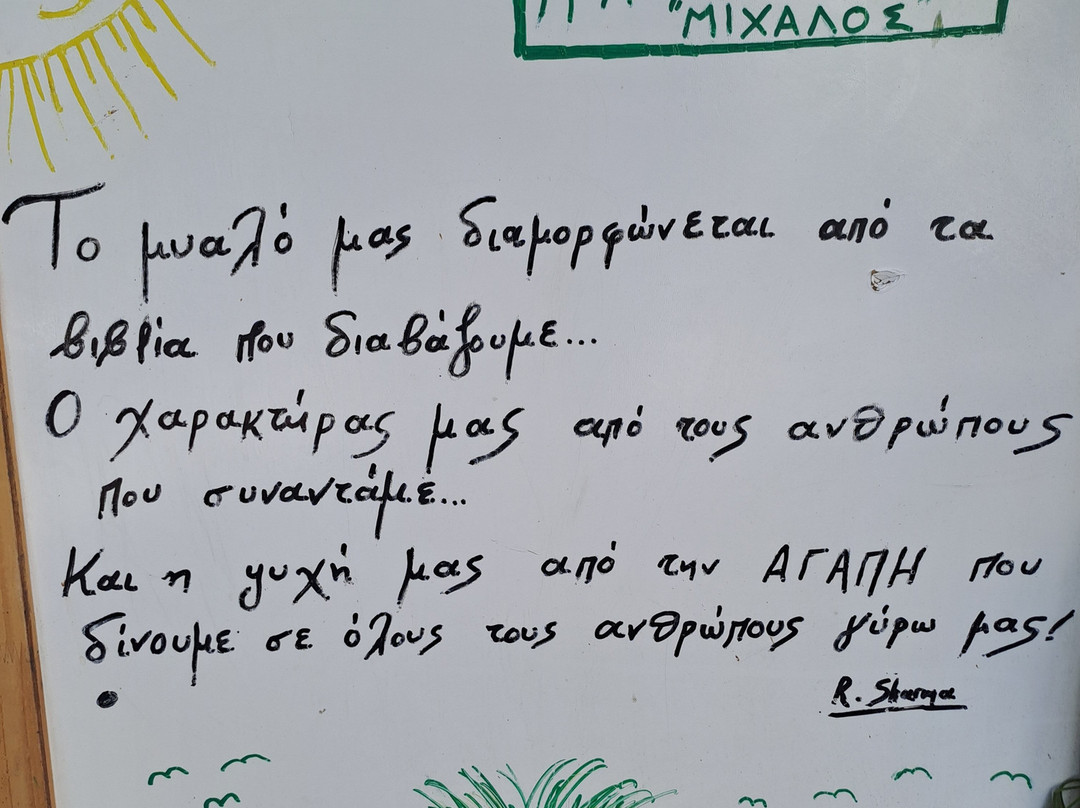 "ΜΙΧΑΛΟΣ"
Το μυαλό μας διαμορφώνεται από τα
βιβλία που διαβάζουμε...
Ο χαρακτήρας μας από τους ανθρώπους
που συναντάμε...
Και η ψυχή μας από την ΑΓΑΠΗ που
δίνουμε σε όλους τους ανθρώπους γύρω μας!
R. Sharma